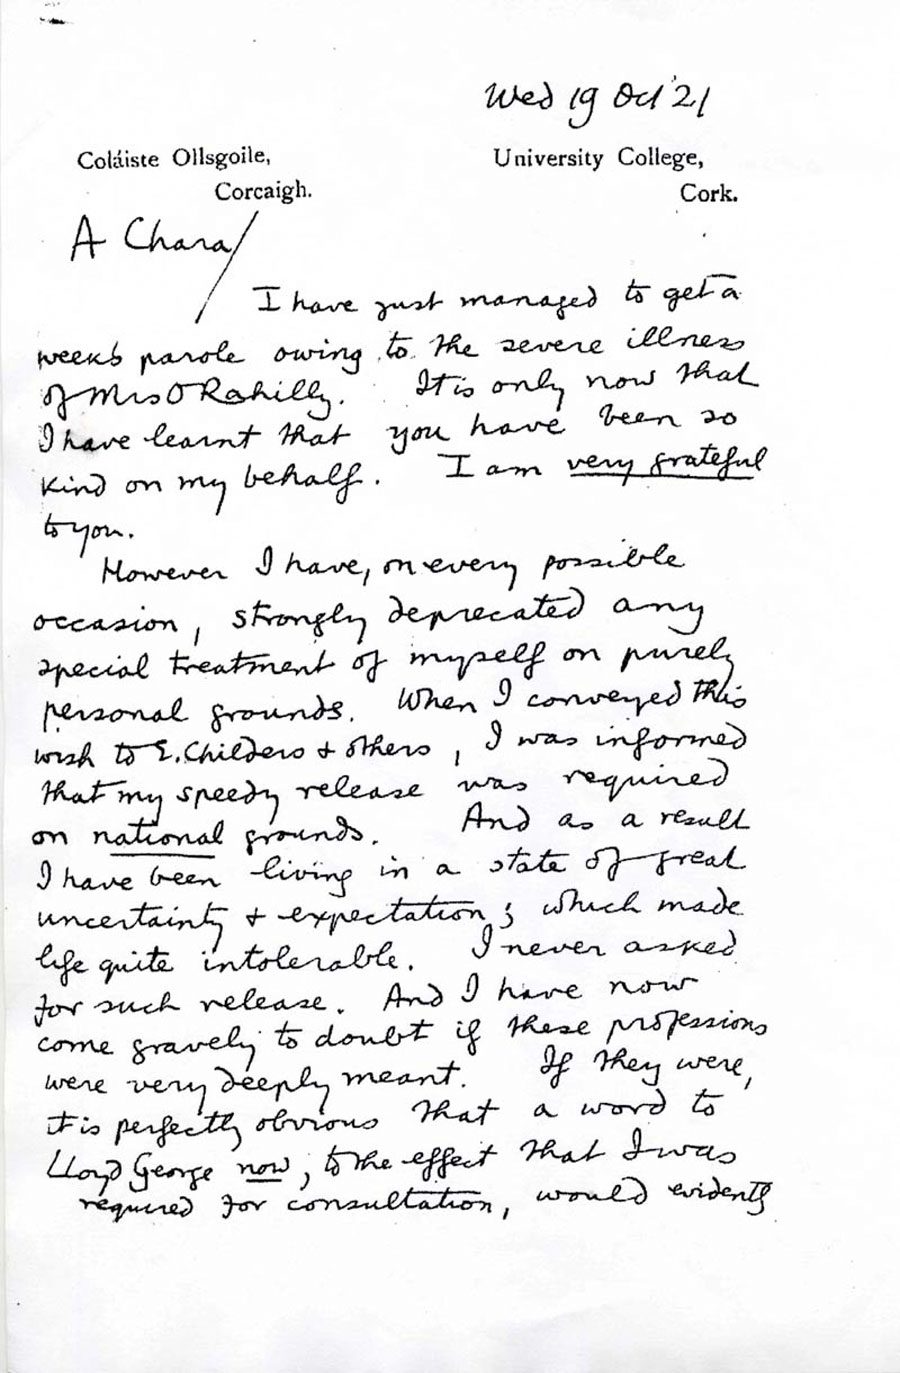 Wed 19 Oct '21
Coláiste Ollsgoile,
Corcaigh.
University College,
Cork.
A Chara/
I have just managed to get a
week's parole owing to the severe illness
of Mrs O Rahilly. It is only now that
I have learnt that you have been so
kind on my behalf. I am very grateful
to you.
However I have, on every possible
occasion, strongly deprecated any
special treatment of myself on purely
personal grounds. When I conveyed this
wish to E. Childers & others, I was informed
that my speedy release was required
on national grounds. And as a result
I have been living in a state of great
uncertainty & expectation; which made
life quite intolerable. I never asked
for such release. And I have now
come gravely to doubt if these professions
were very deeply meant. If they were,
it is perfectly obvious that a word to
Lloyd George now, to the effect that I was
required for consultation, would evidently